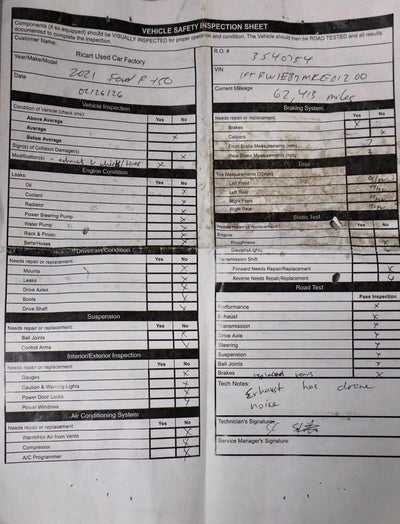 VEHICLE SAFETY INSPECTION SHEET
Components (if so equipped) should be VISUALLY INSPECTED for proper operation and condition. The Vehicle should then be ROAD TESTED and all results
documented to complete the inspection.
Customer Name:
Ricart Used Car Factory
Year/Make/Model:
2021 Ford F150
Date
02/26/26
Vehicle Inspection
Condition of Vehicle (check one) Yes No
Above Average
Average
Below Average X
Sign(s) of Collision Damage(s)
Modification(s) - exhaust & X
Engine Condition
Leaks Yes No
Oil X
Coolant X
Radiator X
Power Steering Pump X
Water Pump X
Rack & Pinion X
Belts/Hoses X
Drivetrain Condition
Needs repair or replacement: Yes No
Mounts X
Leaks X
Drive Axles X
Boots X
Drive Shaft X
Suspension
Needs repair or replacement: Yes No
Ball Joints X
Control Arms X
Interior/Exterior Inspection
Needs repair or replacement: Yes No
Gauges X
Caution & Warning Lights X
Power Door Locks X
Power Windows X
Air Conditioning System
Needs repair or replacement: Yes No
Warm/Hot Air from Vents X
Compressor X
A/C Programmer X
R.O. #
3540754
VIN
Current Mileage
62,413 miles
Braking System
Needs repair or replacement: Yes No
Brakes X
Calipers X
Front Brake Measurements (mm) 7
Rear Brake Measurements (mm)
Tires
Tire Measurements (32nds)
Left Front
Left Rear
Right Front
Right Rear
Static Test
Needs Repair or Replacement: Yes No
Engine:
Roughness X
Gauges/Lights X
Transmission Shift:
Forward Needs Repair/Replacement
Reverse Needs Repair/Replacement
Road Test
Pass Inspection
Performance X
Exhaust X
Transmission X
Drive Axle X
Steering X
Suspension X
Ball Joints X
Brakes replaced rears X
Tech Notes:
Exhaust has drone
noise
Technician's Signature:
Service Manager's Signature: